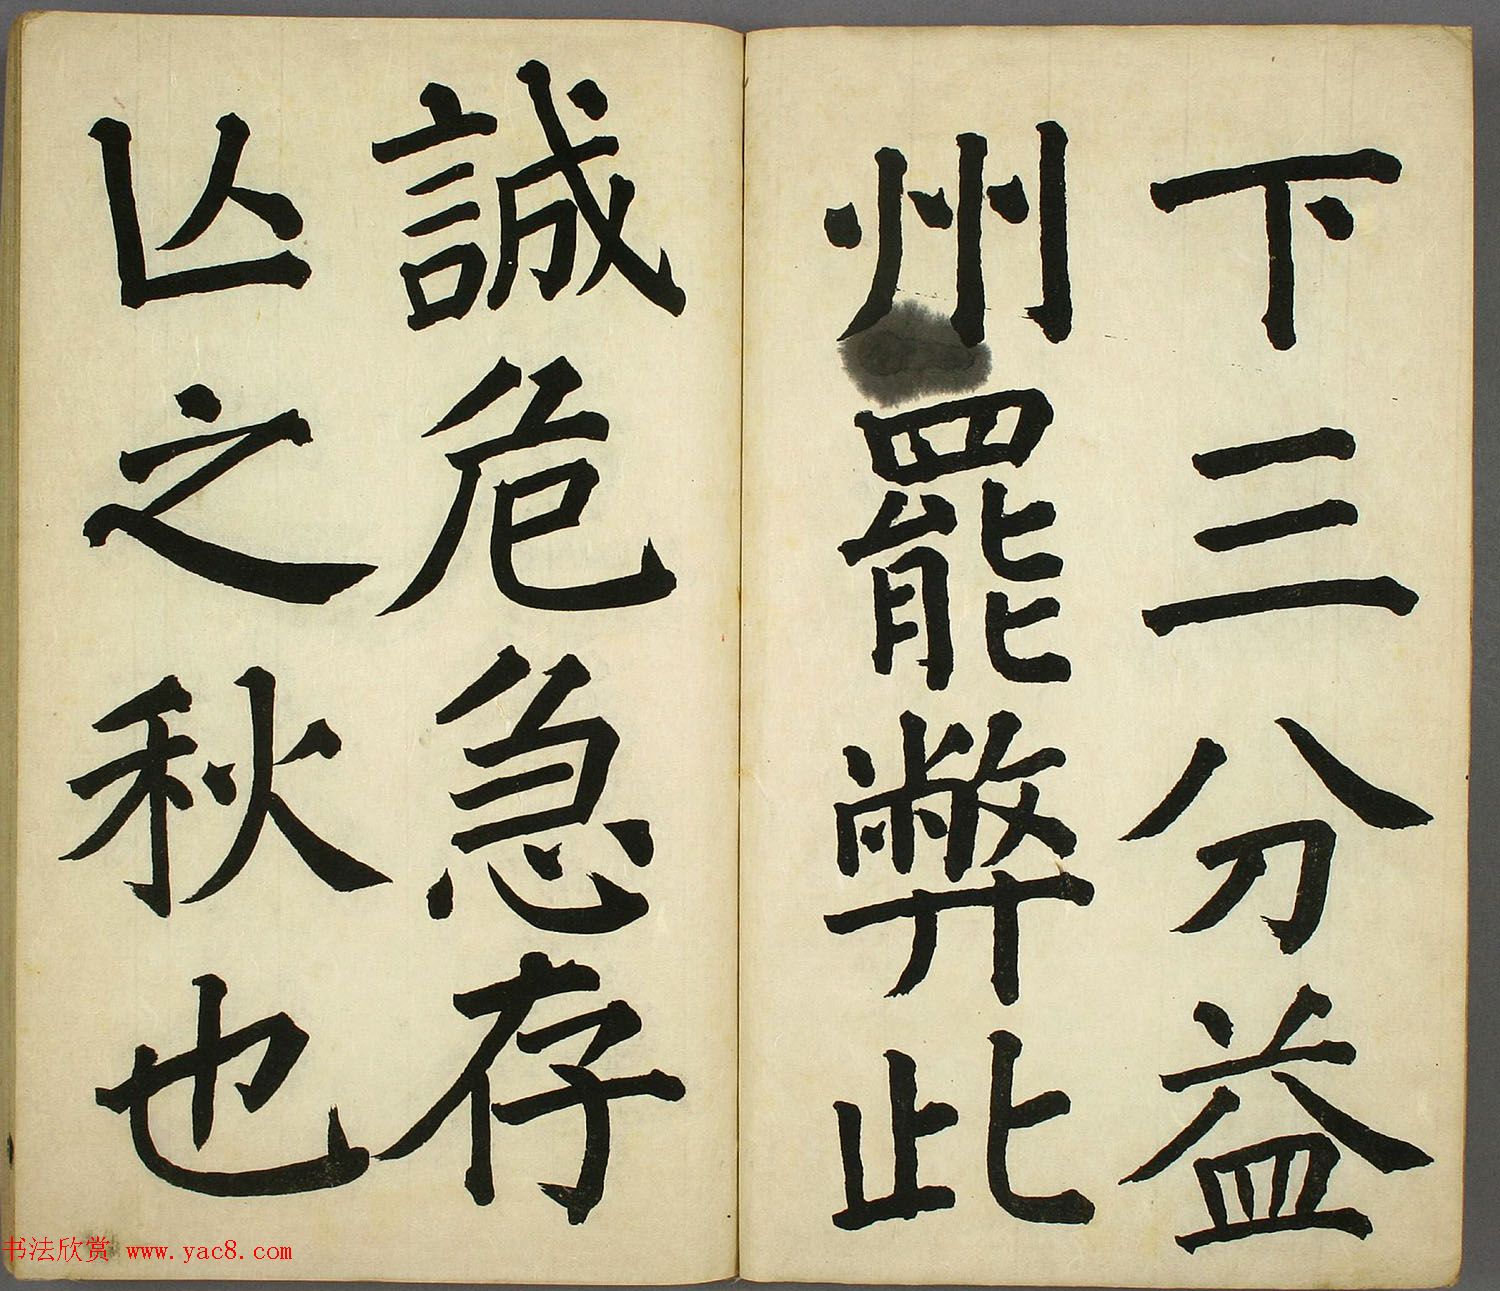 下三分益
州罷弊此
誠危急存
亾之秋也
书法欣赏 www.yac8.com